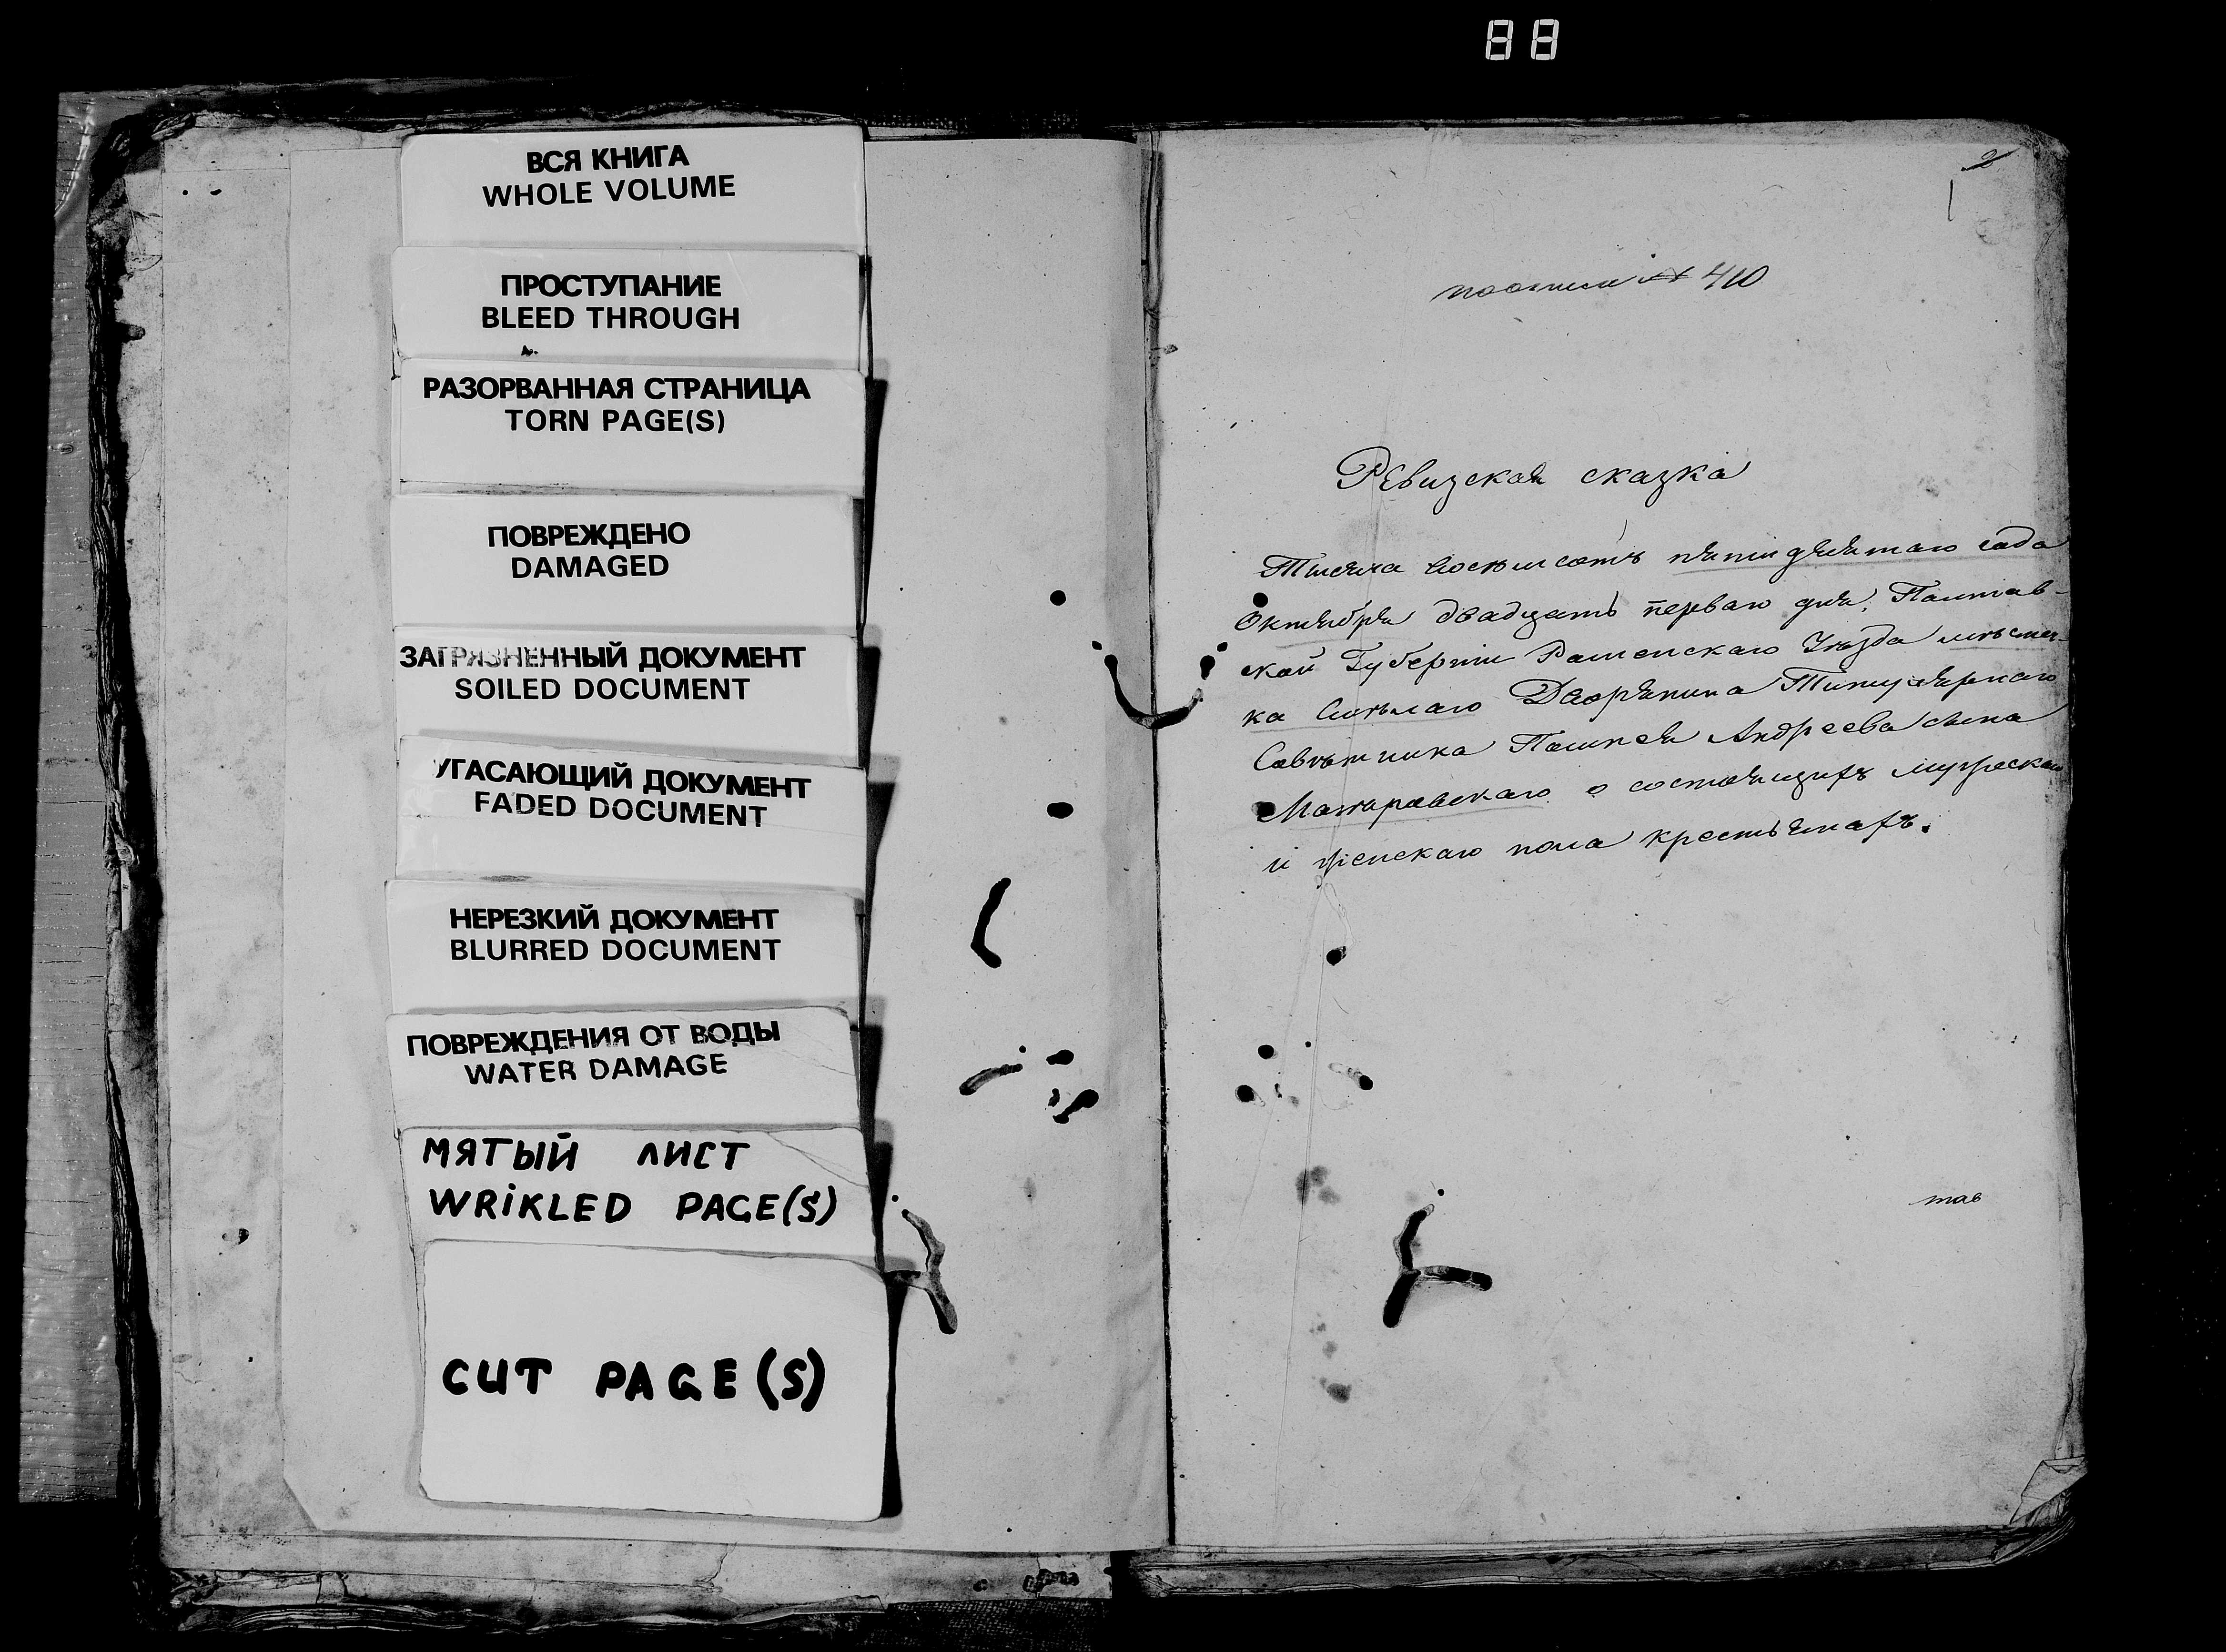 88
ВСЯ КНИГА
WHOLE VOLUME
ПРОСТУПАНИЕ
BLEED THROUGH
РАЗОРВАННАЯ СТРАНИЦА
TORN PAGE(S)
ПОВРЕЖДЕНО
DAMAGED
ЗАГРЯЗНЕННЫЙ ДОКУМЕНТ
SOILED DOCUMENT
УГАСАЮЩИЙ ДОКУМЕНТ
FADED DOCUMENT
НЕРЕЗКИЙ ДОКУМЕНТ
BLURRED DOCUMENT
ПОВРЕЖДЕНИЯ ОТ ВОДЫ
WATER DAMAGE
МЯТЫЙ ЛИСТ
WRIKLED PAGE(S)
CUT PAGE(S)
2
1
по описи № 410
Ревизская сказка
Тысяча восемьсотъ пятидесятаго года
Октября двадцать перваго дня, Полтав-
ской Губерніи Роменскаго Уѣзда мѣстеч-
ка Смѣлаго Дворянина Титулярнаго
Совѣтника Андреева сына
о состоящихъ мужеска
и женскаго пола крестьянахъ.